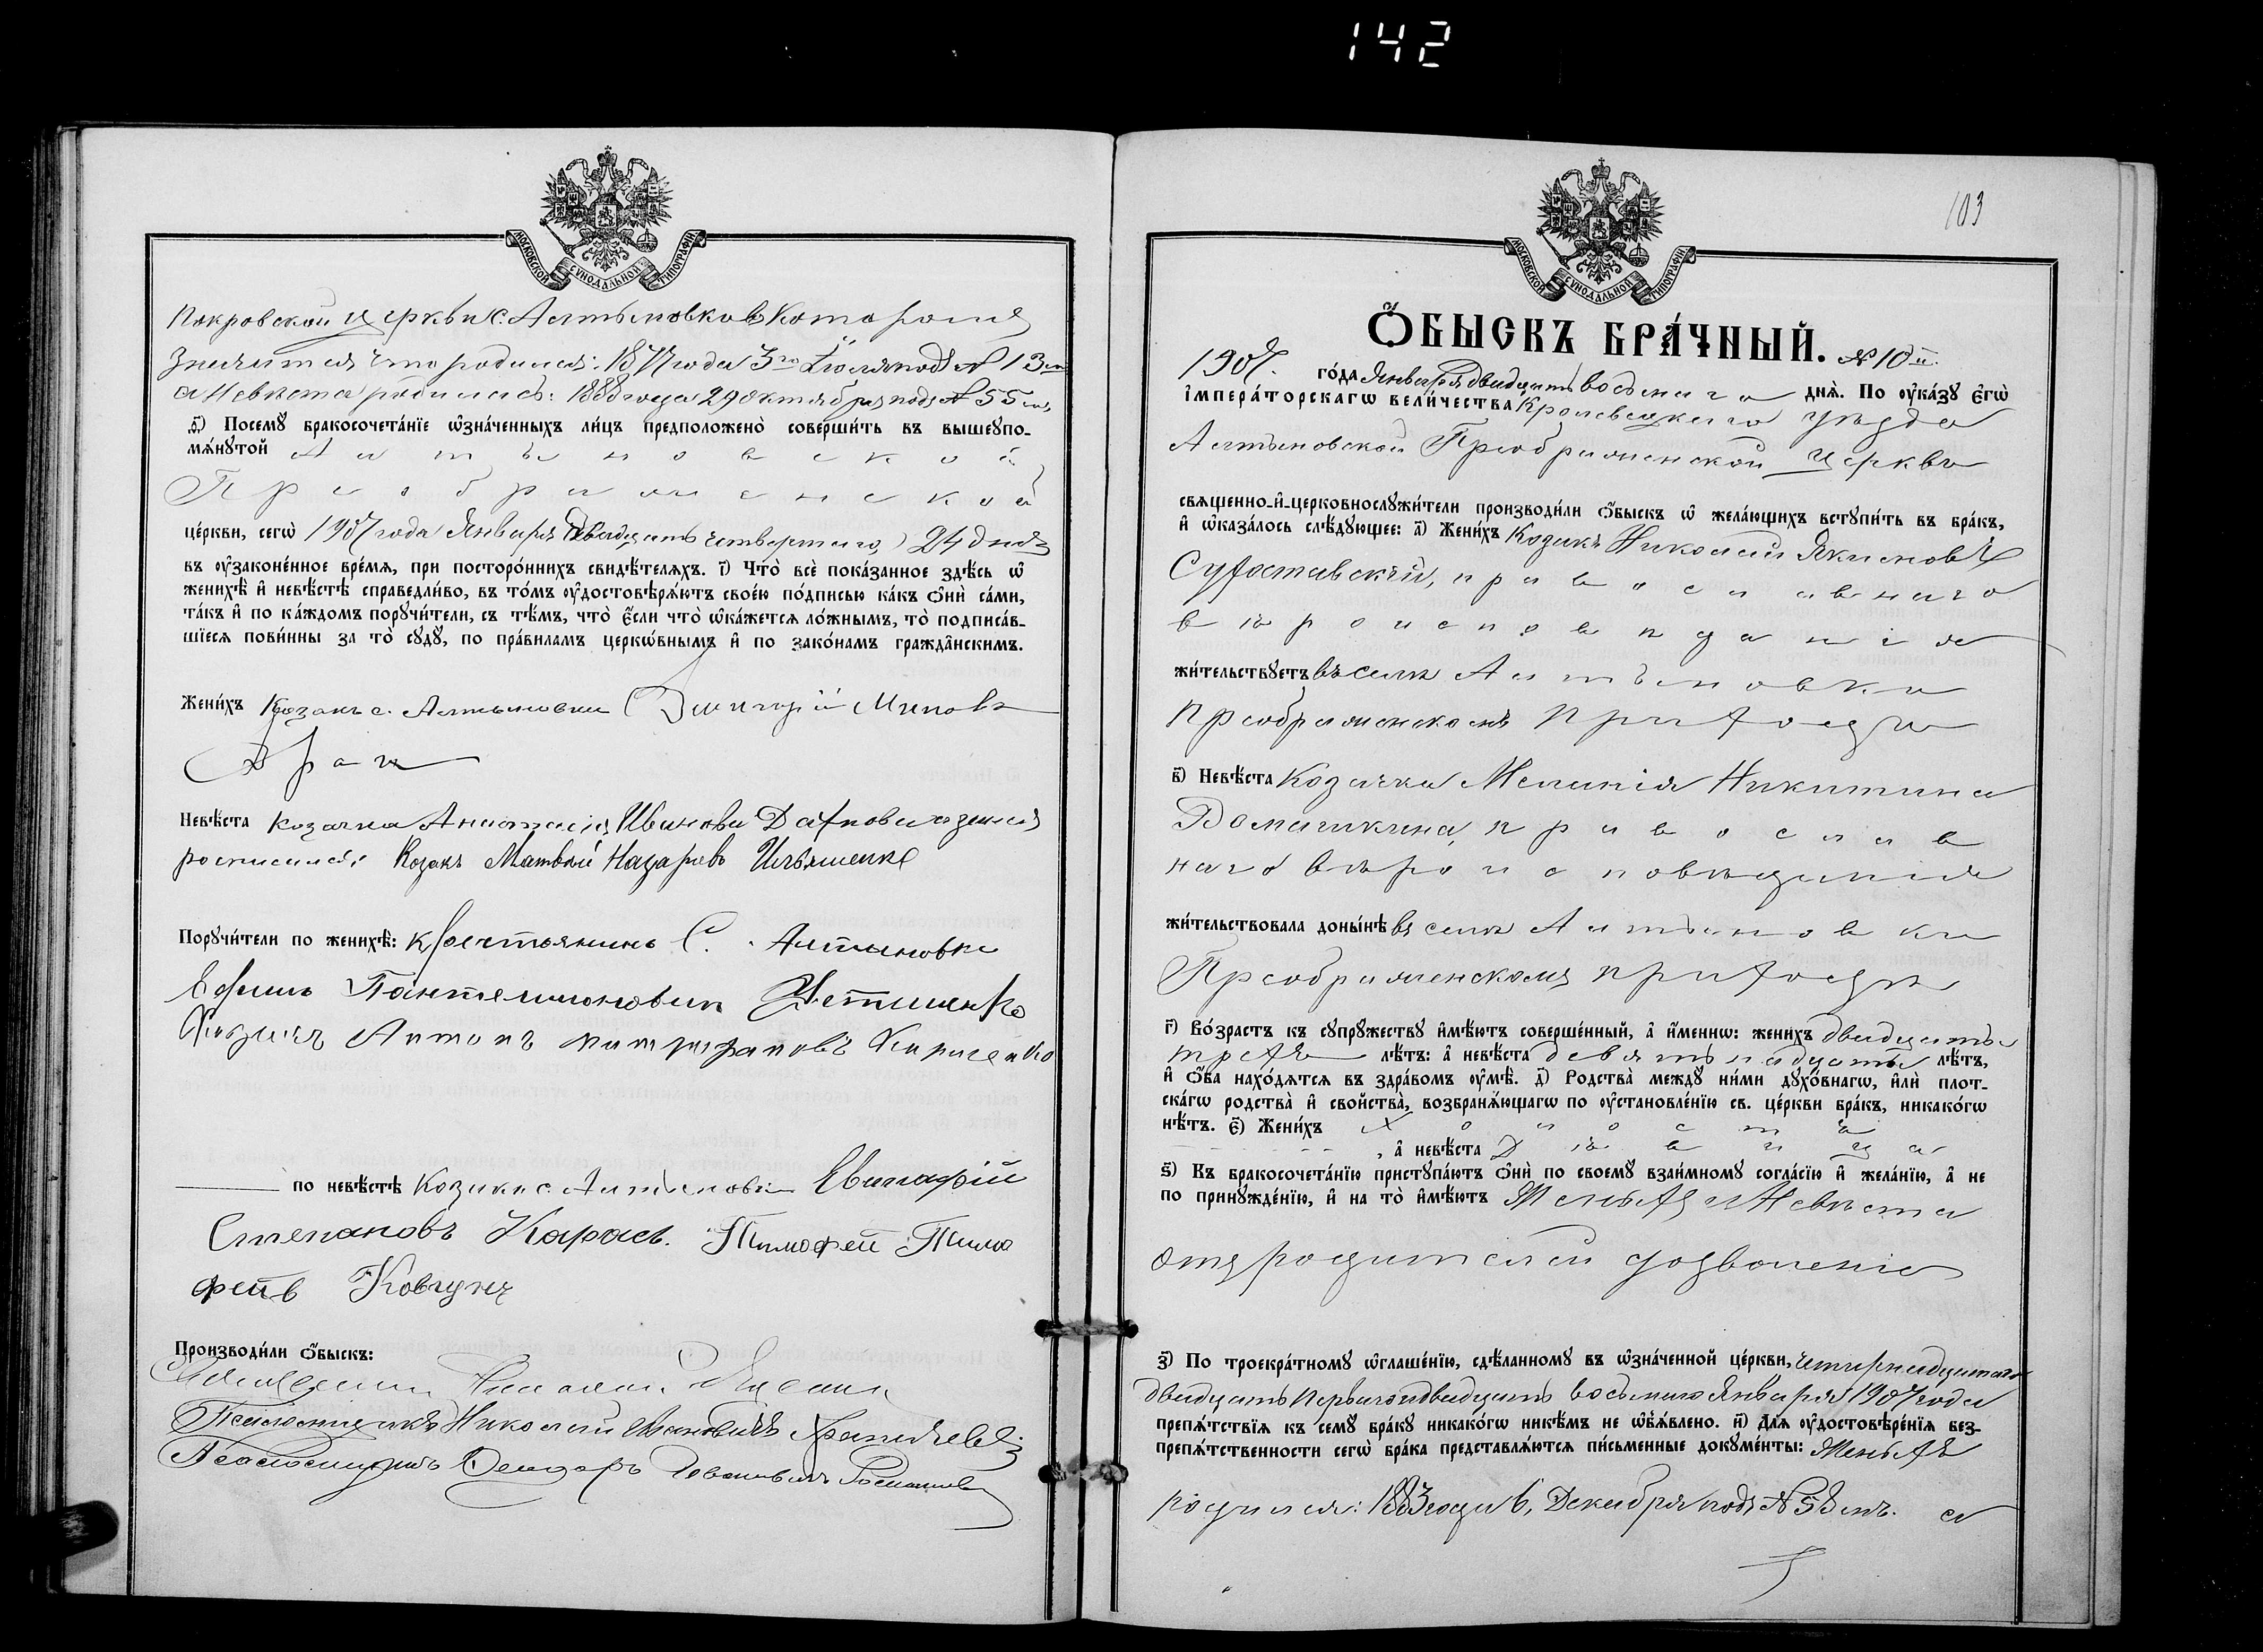 142
МОСКОВСКОЙ СУНОДАЛЬНОЙ ТИПОГРАФІИ
Покровской церкви с. Алтыновки в которой
значится что родился: 1877 года 3го Іюля подъ № 13мъ
а Невѣста родилась: 1888 года 29 октября подъ № 55мъ
ѳ҃) Посемꙋ бракосочета́нїе ѡ҆зна́ченныхъ ли́цъ предположено̀ соверши́ть въ вышеꙋпо-
мѧ́нꙋтой Алтыновской
Преображенской
це́ркви, сегѡ̀ 1907 года Января Двадцать четвертаго 24 дня
въ ᲂу҆зако́ненное вре́мѧ, при посторо́ннихъ свидѣ́телѧхъ. і҃) Что̀ всѐ пока́занное здѣ́сь ѡ҆
женихѣ̀ и҆ невѣ́стѣ справедли́во, въ то́мъ ᲂу҆достовѣрѧ́ютъ свое́ю по́дписью ка́къ ѻ҆нѝ са́ми,
та́къ и҆ по ка́ждомъ порꙋчи́тели, съ тѣ́мъ, что̀ є҆́сли что̀ ѡ҆ка́жетсѧ ло́жнымъ, то̀ подписа́в-
шїесѧ пови́нны за то̀ сꙋдꙋ̀, по пра́виламъ церко́внымъ и҆ по зако́намъ гражда́нскимъ.
Жени́хъ Козакъ с. Алтыновки Миновъ
Невѣ́ста козачка Анастасія Иванова
росписался: Козакъ Матвѣй Назаровъ Ильяшенко
Порꙋчи́тели по женихѣ̀: крестьянинъ С. Алтыновки
Ефимъ Пантелимоновичъ Устименко
Козакъ Антонъ Митрофановъ Кириченко
по невѣ́стѣ Козаки с. Алтыновки Евстафій
Степановъ Карась. Тимофей Тимо
феевъ Ковгунъ
Производи́ли ѻ҆́быскъ:
Священникъ Николай
Псаломщикъ Николай Ивановичъ
Псаломщикъ
103
МОСКОВСКОЙ СУНОДАЛЬНОЙ ТИПОГРАФІИ
Ѻ҆́БЫСКЪ БРА́ЧНЫЙ. № 10й.
1907. го́да Января двадцать восьмаго днѧ̀. По ᲂу҆ка́зꙋ є҆гѡ̀
і҆мпера́торскагѡ вели́чества Кролевецкаго уѣзда
Алтыновской Преображенской церкви
свѧщенно-и҆-церковнослꙋжи́тели производи́ли ѻ҆́быскъ ѡ҆ жела́ющихъ встꙋпи́ть въ бра́къ,
и҆ ѡ҆каза́лось слѣ́дꙋющее: а҃) Жени́хъ Козакъ Николай Якимовъ
Сухоставскій, православнаго
вѣроисповѣданія
жи́тельствꙋетъ въ селѣ Алтыновки
Преображенскомъ приходѣ
в҃) Невѣ́ста Козачка Меланія Никитина
православ
наго вѣроисповѣданія
жи́тельствовала доны́нѣ въ селѣ Алтыновки
Преображенскомъ приходѣ
г҃) Во́зрастъ къ сꙋпрꙋ́жествꙋ и҆мѣ́ютъ соверше́нный, а҆ и҆́меннѡ: жени́хъ двадцать
трехъ лѣ́тъ: а҆ невѣ́ста девятнадцать лѣ́тъ,
и҆ ѻ҆́ба нахо́дѧтсѧ въ здра́вомъ ᲂу҆мѣ̀. д҃) Родства̀ междꙋ̀ ни́ми дꙋхо́внагѡ, и҆лѝ плот-
ска́гѡ родства̀ и҆ сво́йства̀, возбранѧ́ющагѡ по ᲂу҆становле́нїю св. це́ркви бра́къ, никако́гѡ
нѣ́тъ. є҃) Жени́хъ Холостъ
, а҆ невѣ́ста Дѣвица
ѕ҃) Къ бракосочета́нїю пристꙋпа́ютъ ѻ҆нѝ по своемꙋ̀ взаи́мномꙋ согла́сїю и҆ жела́нїю, а҆ не
по принꙋжде́нїю, и҆ на то̀ и҆мѣ́ютъ Женихъ и Невѣста
отъ родителей дозволеніе
з҃) По троекра́тномꙋ ѡ҆глаше́нїю, сдѣ́ланномꙋ въ ѡ҆зна́ченной це́ркви, четырнадцатаго
двадцать перваго и двадцать восьмаго Января 1907 года
препѧ́тствїѧ къ семꙋ̀ бра́кꙋ никако́гѡ никѣ́мъ не ѡ҆б̾ѧ́влено. и҃) Длѧ̀ ᲂу҆достовѣре́нїѧ без-
препѧ́тственности сегѡ̀ бра́ка представлѧ́ютсѧ пи́сьменные докꙋме́нты: Женихъ
родился: 1883 года 6, Декабря подъ № 58мъ. а